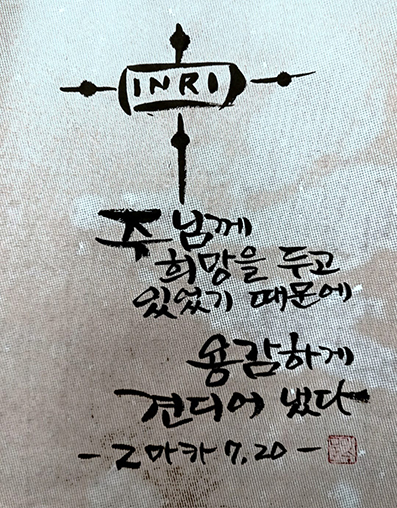 INRI
주님께
희망을 두고
있었기 때문에
용감하게
견디어 냈다
- 2마카 7,20 -